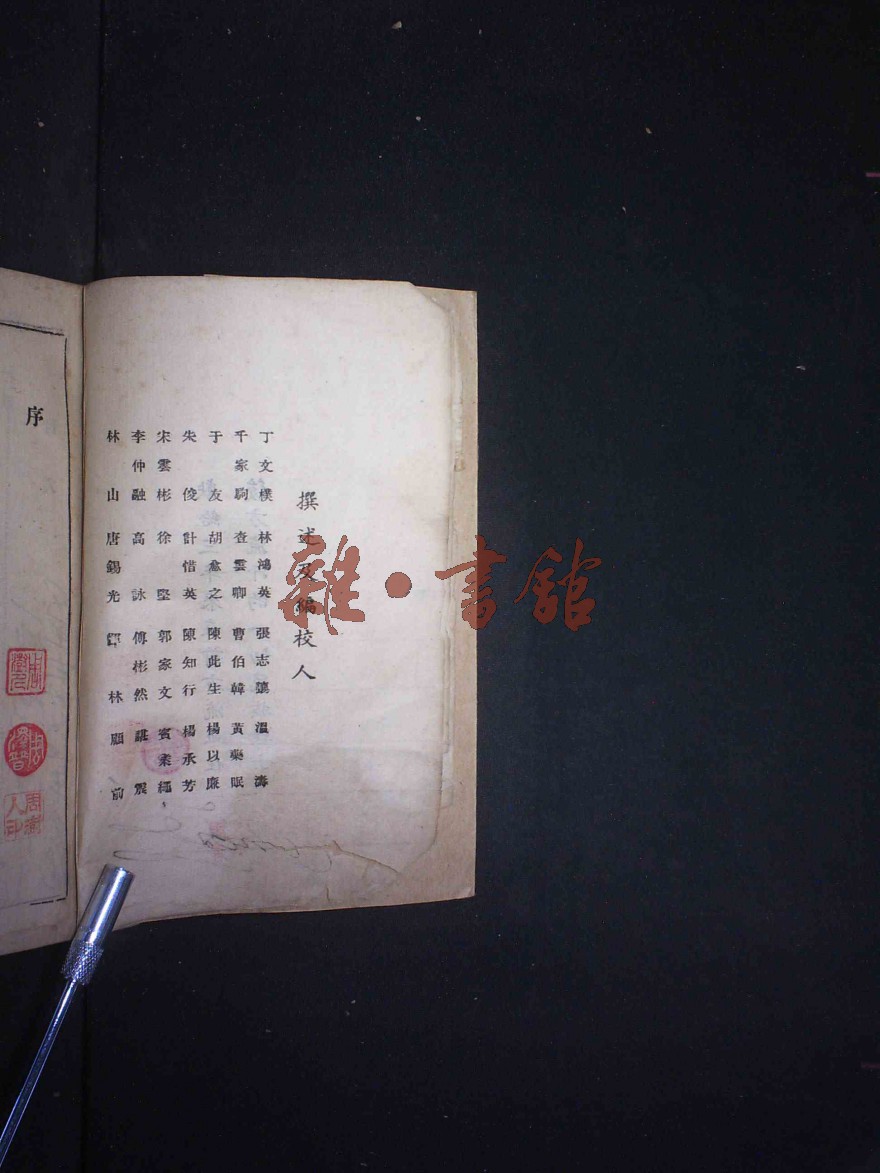 撰述及編校人
丁文樸 林鴻英 張志讓 溫濤
千家駒 查雲卿 曹伯韓 黃藥眠
于友 胡愈之 陳此生 楊以廉
朱俊 計惜英 陳知行 楊承芳
宋雲彬 徐堅 郭家文 賓柔繩
李仲融 高詠 傅彬然 諶震
林山 唐錫光 譚林 顧前
序
雜·書館